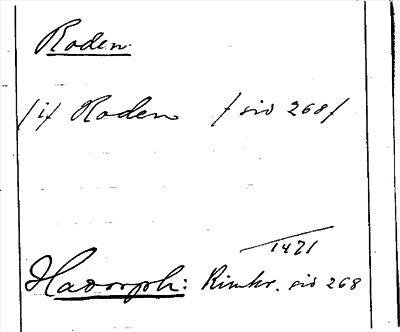 Roden.
/ i / Roden / sid 268 /
1471
Hadorph: Rimkr. sid 268